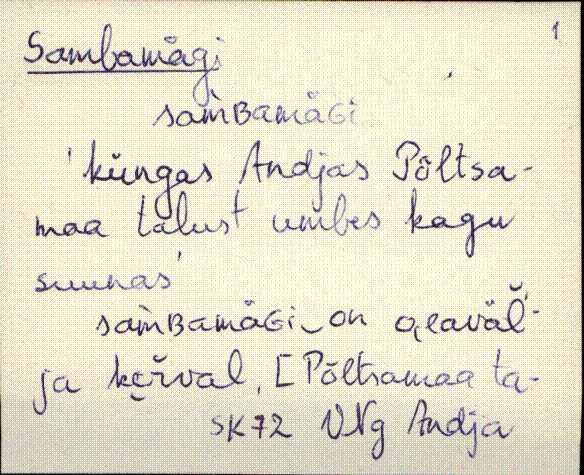 1
Sambamägi
sam̀ʙamäɢi
'küngas Andjas Põltsa-
maa talust umbes kagu
suunas'
sam̀ʙamäɢi on
ja kõrval, [Põltsamaa ta-
SK72 VNg Andja